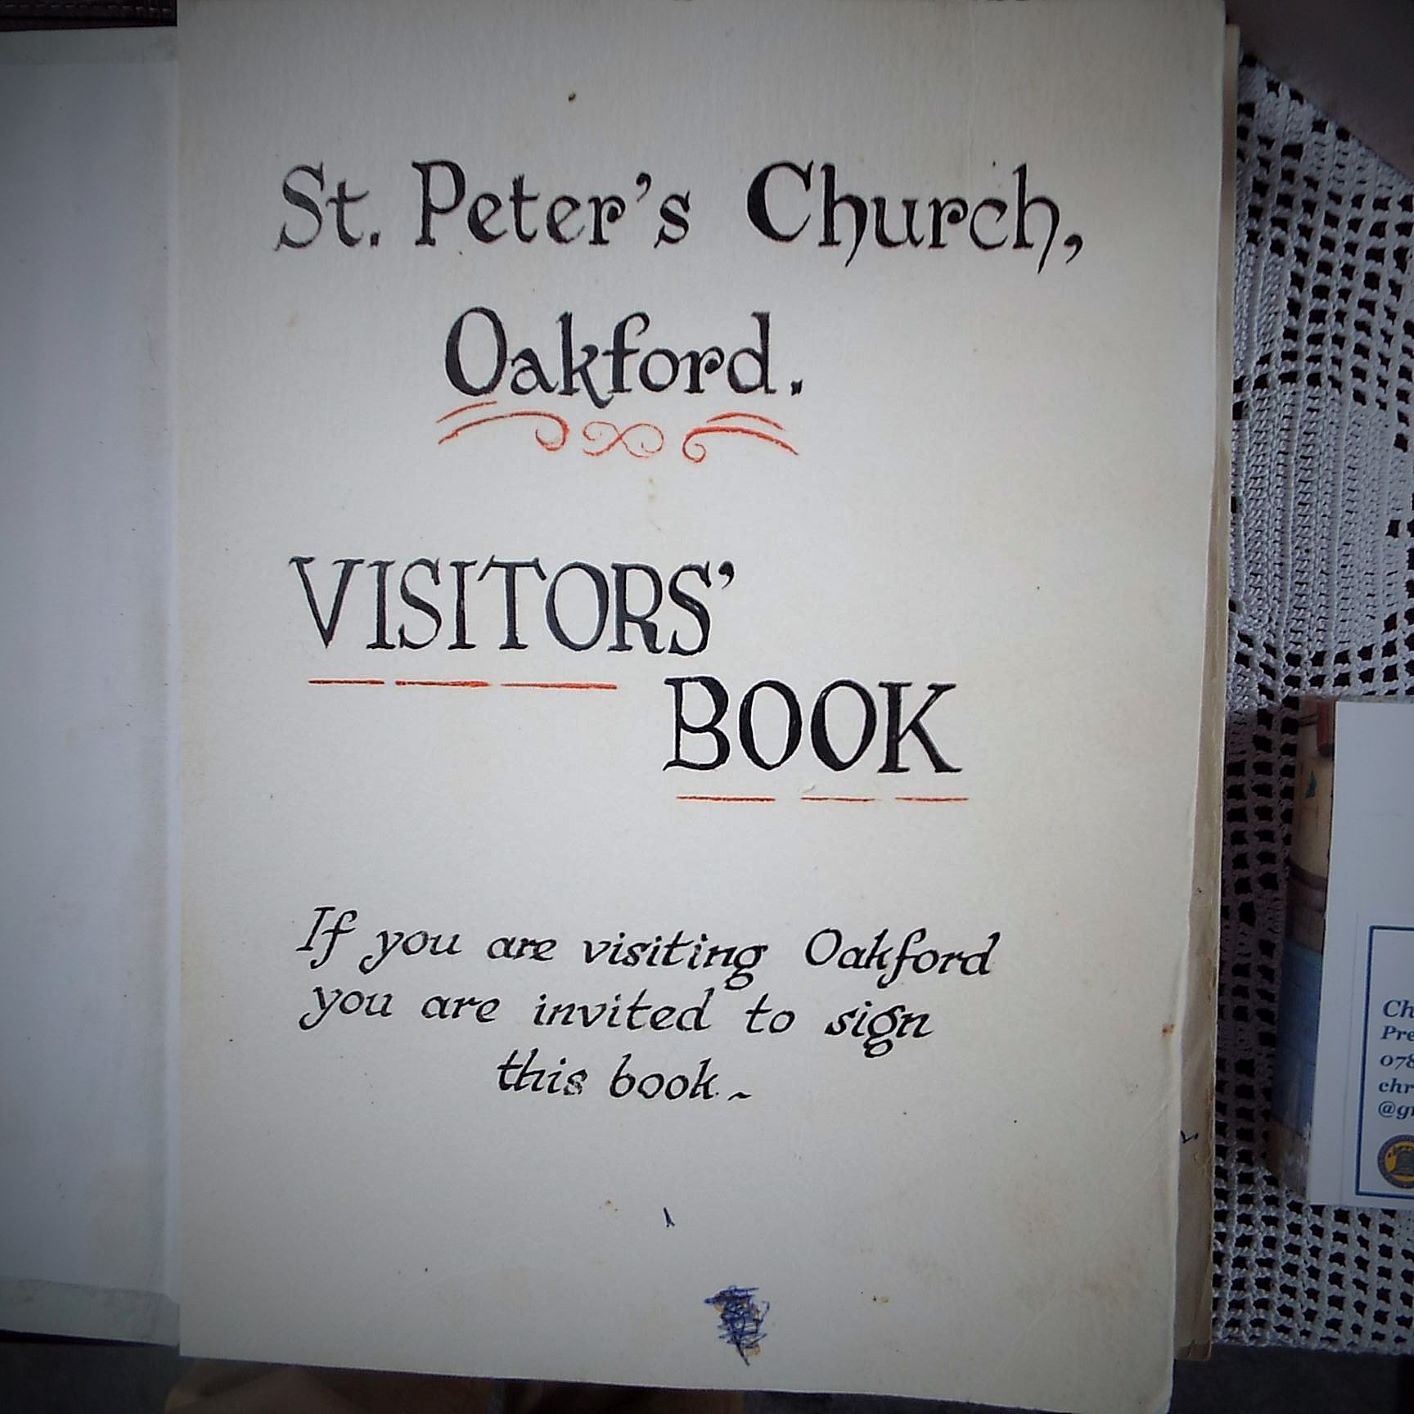 St. Peter's Church,
Oakford.
VISITORS'
BOOK
If you are visiting Oakford
you are invited to sign
this book~